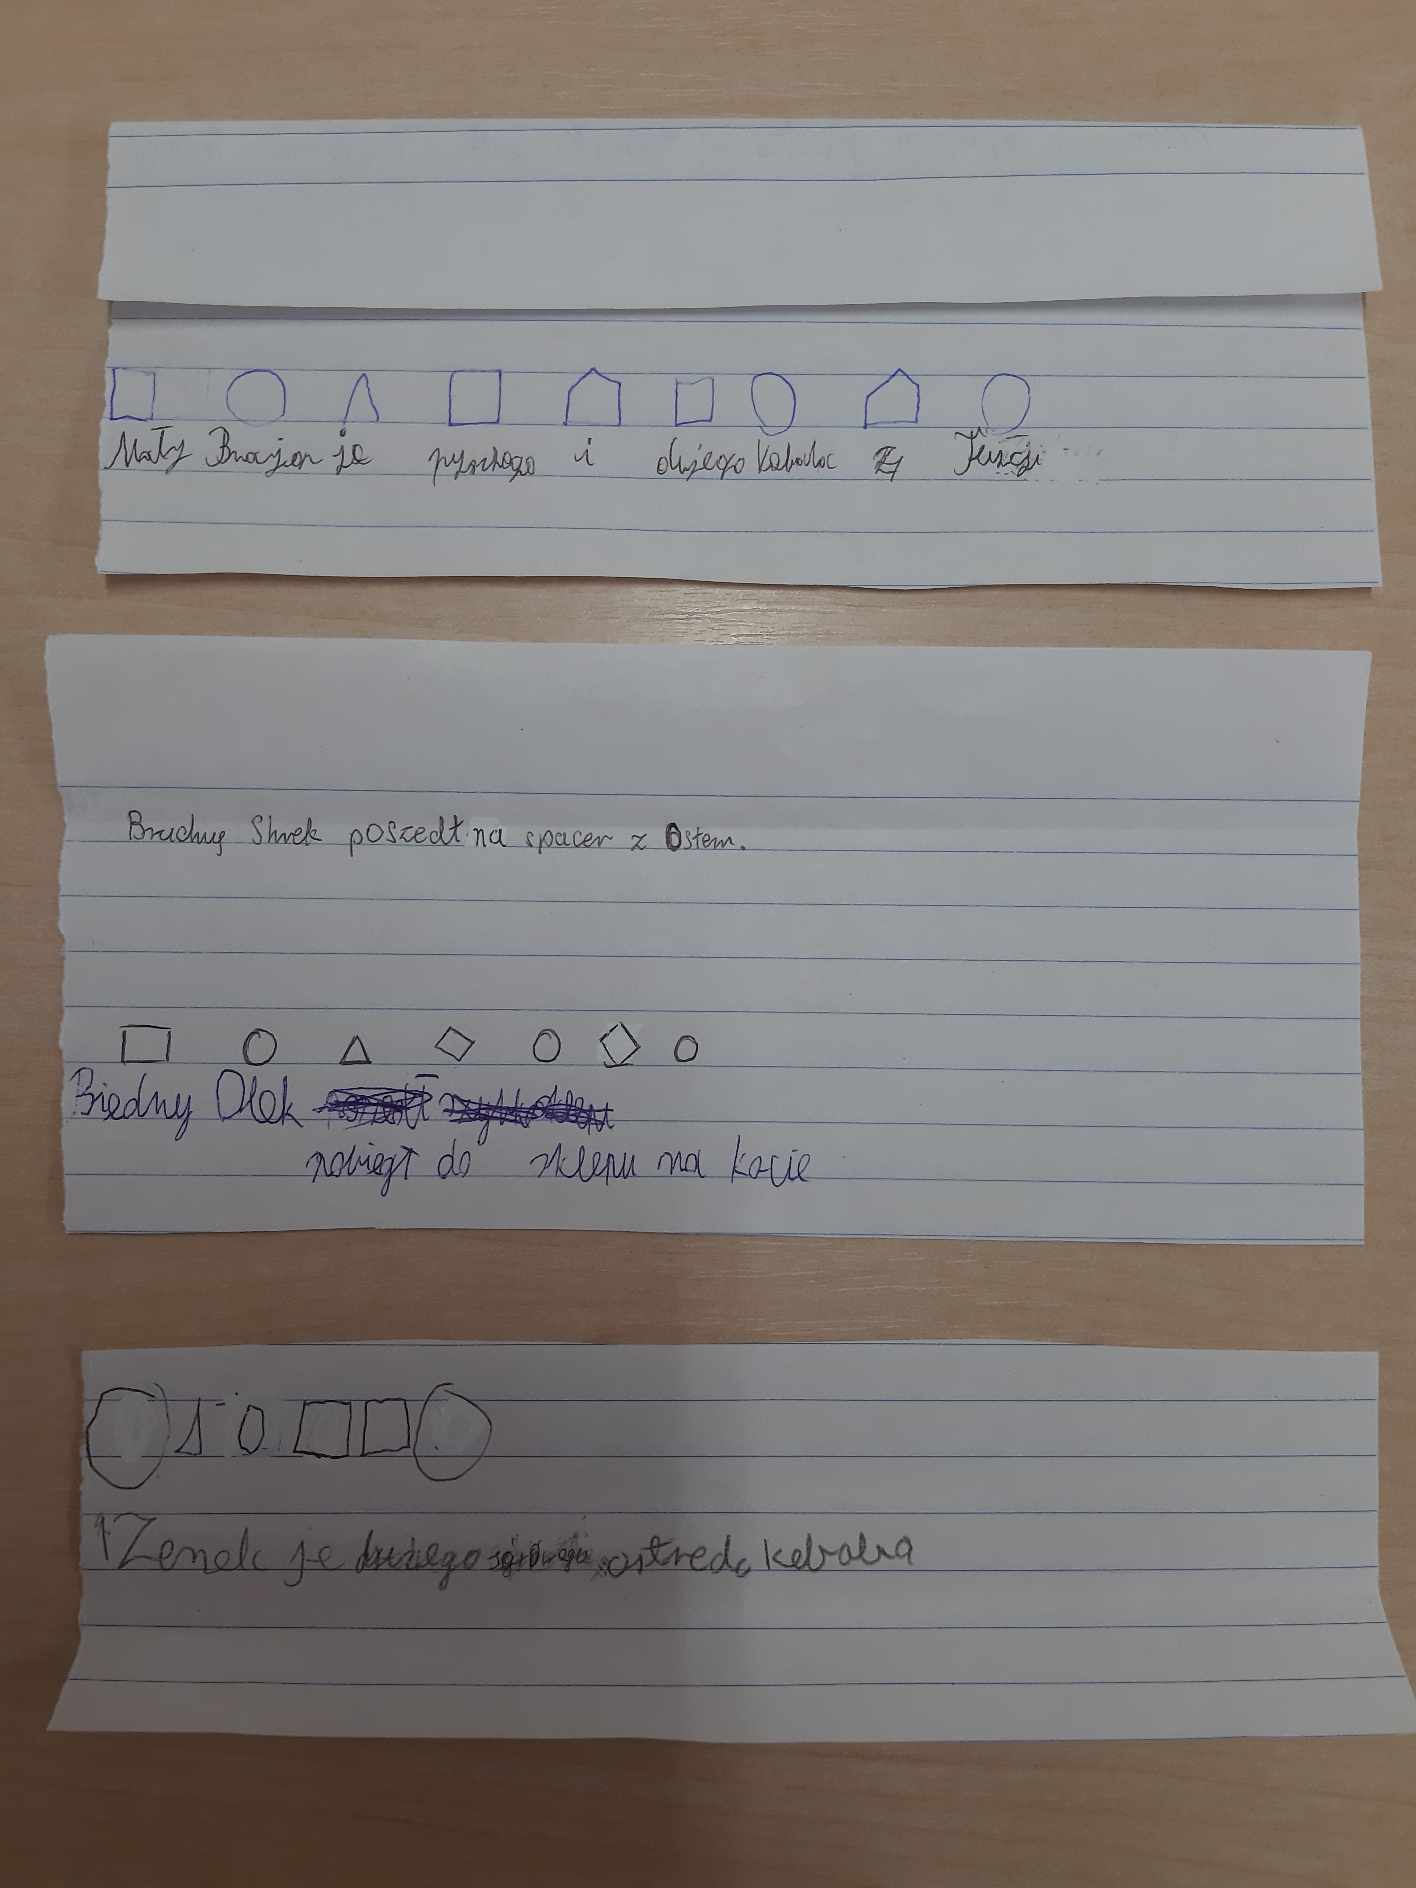 Mały Brajan je pysznego i dużego kebaba z Turcji
Brudny Shrek poszedł na spacer z Osłem.
Biedny Olek
pobiegł do sklepu na kacie
Zenek je dużego ostrego kebaba